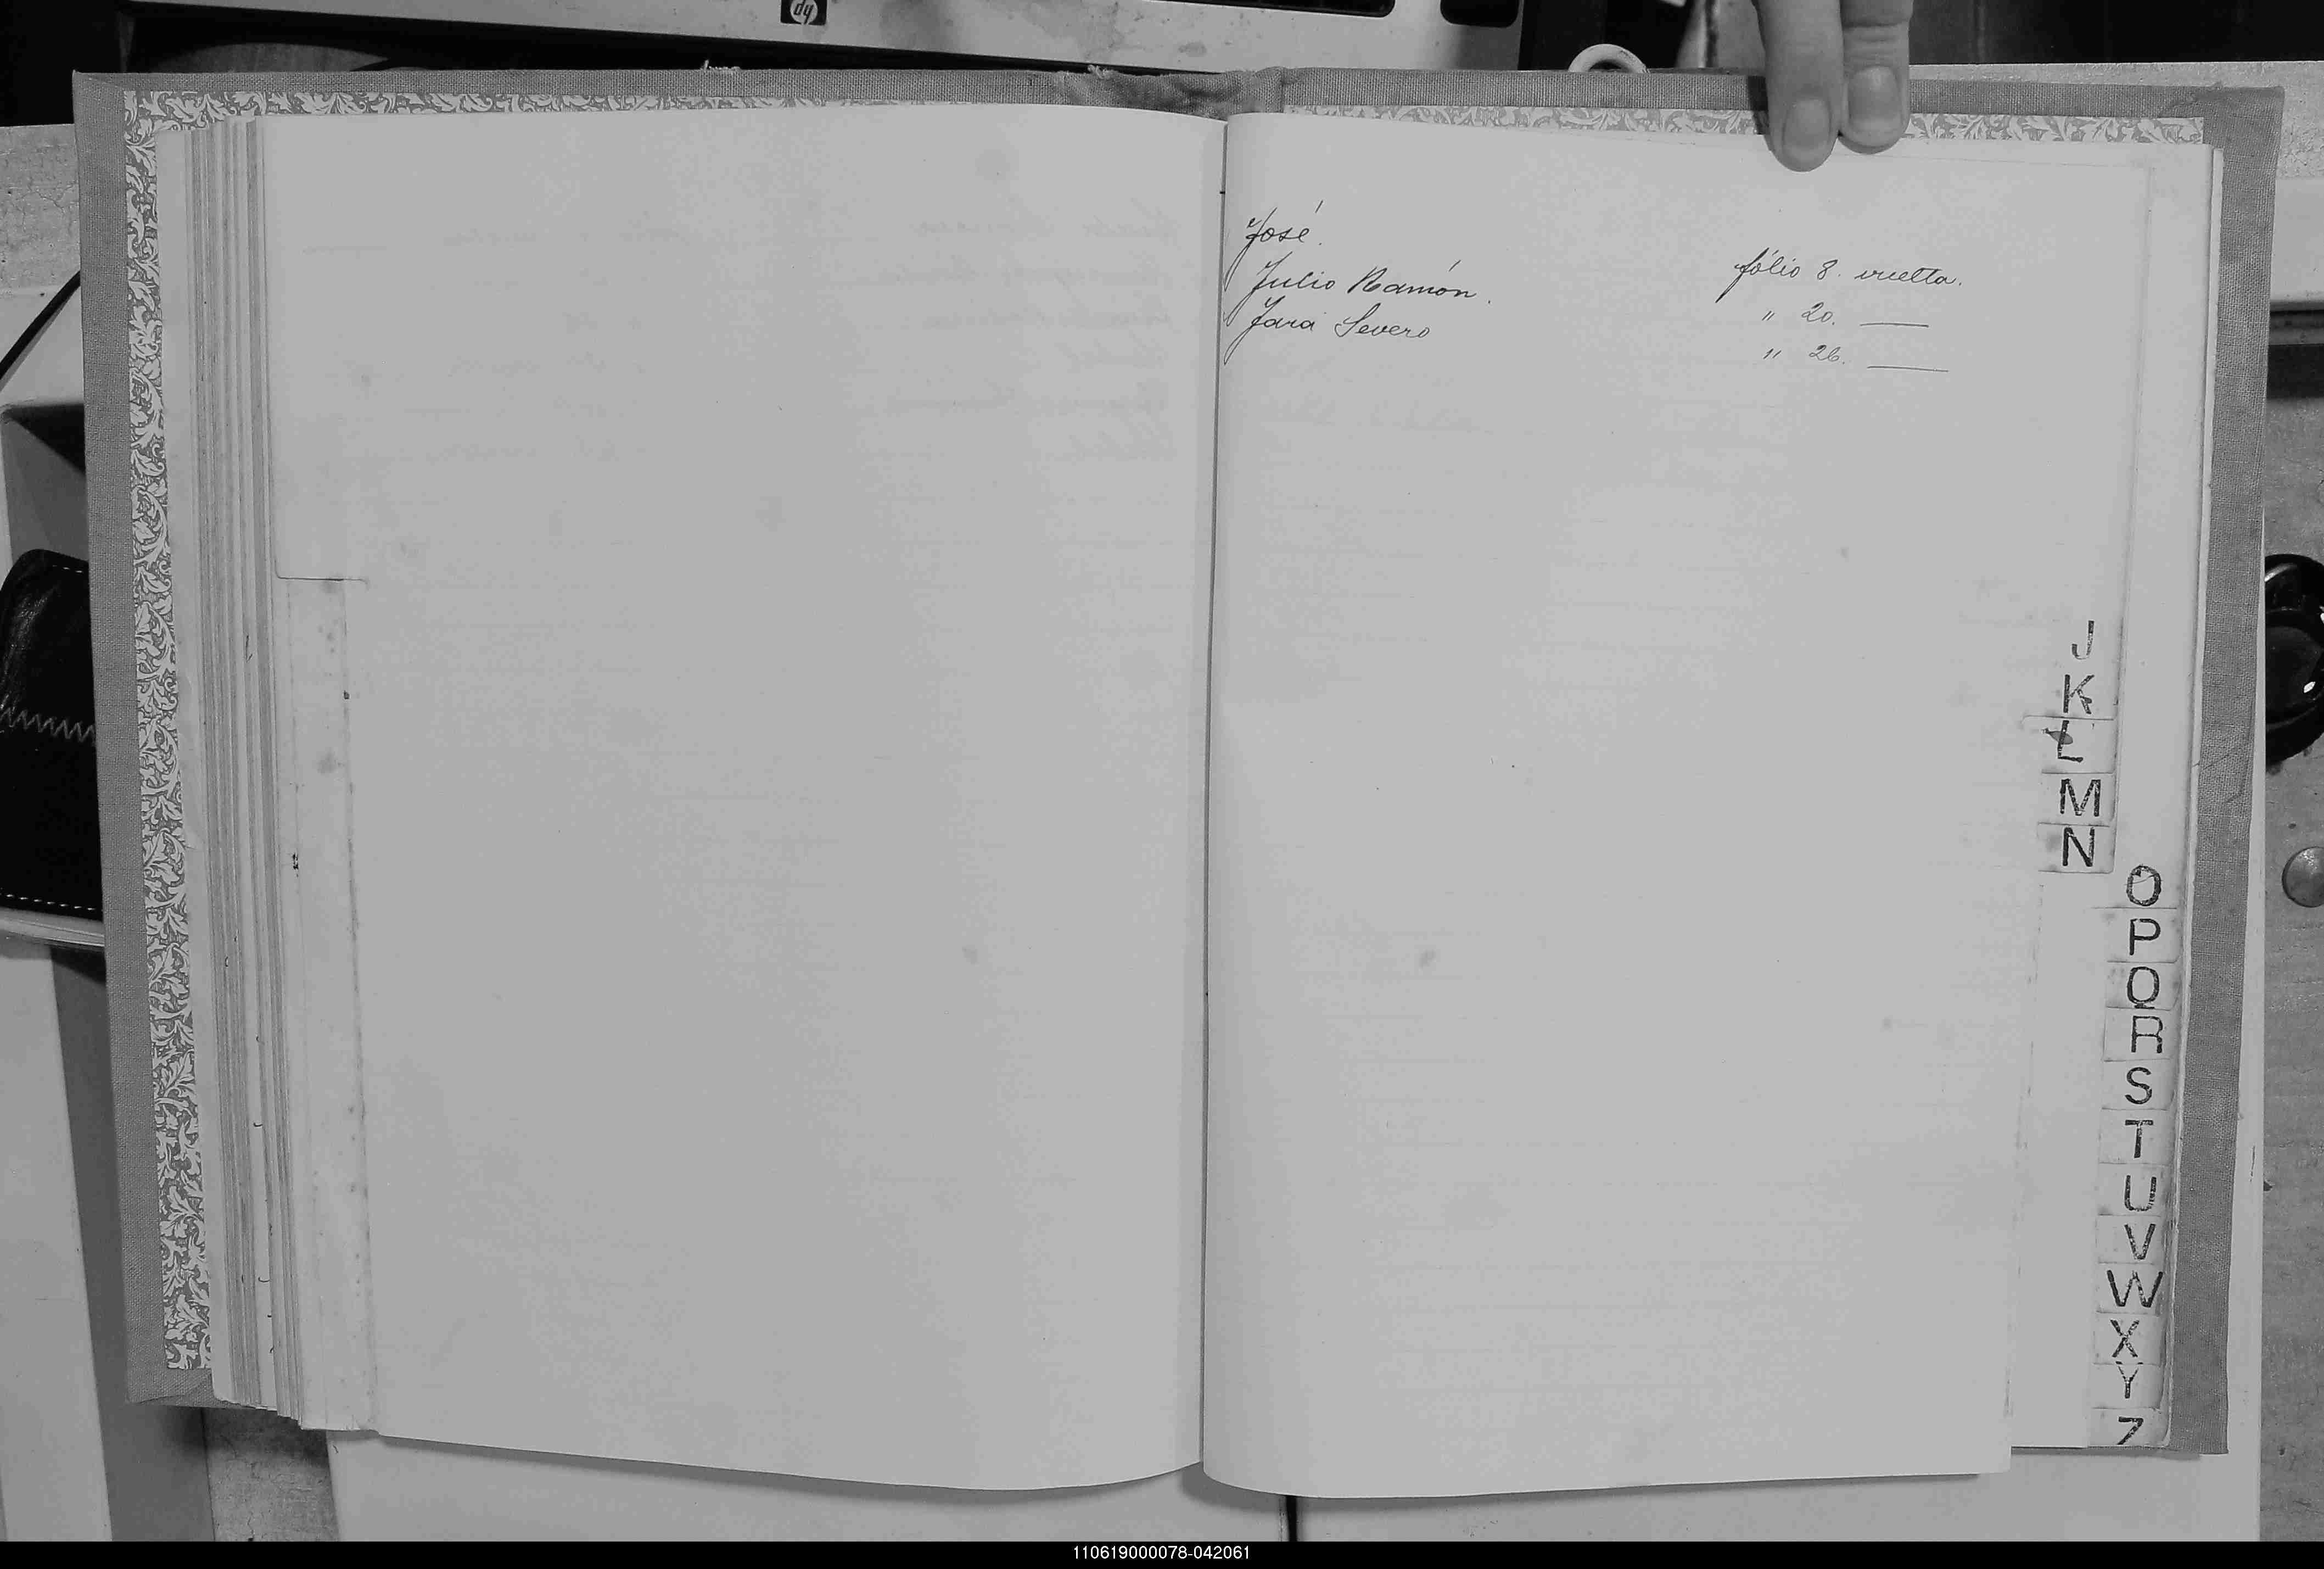 hp
José. fólio 8. vuelta.
Julio Ramón. " 20. ——
Jara Severo " 26. ——
J
K
L
M
N
O
P
Q
R
S
T
U
V
W
X
Y
Z
110619000078-042061